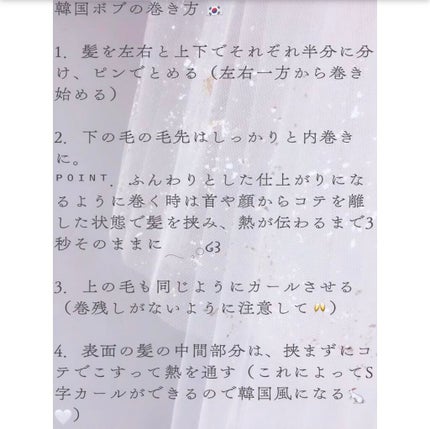 韓国ボブの巻き方 🇰🇷
1. 髪を左右と上下でそれぞれ半分に分
け、ピンでとめる（左右一方から巻き
始める）
2. 下の毛の毛先はしっかりと内巻き
に。
ᴾᴼᴵᴺᵀ. ふんわりとした仕上がりにな
るように巻く時は首や顔からコテを離
した状態で髪を挟み、熱が伝わるまで3
秒そのままに
3. 上の毛も同じようにカールさせる
（巻残しがないように注意して🙌）
4. 表面の髪の中間部分は、挟まずにコ
テでこすって熱を通す（これによってS
字カールができるので韓国風になる🦢
🤍）